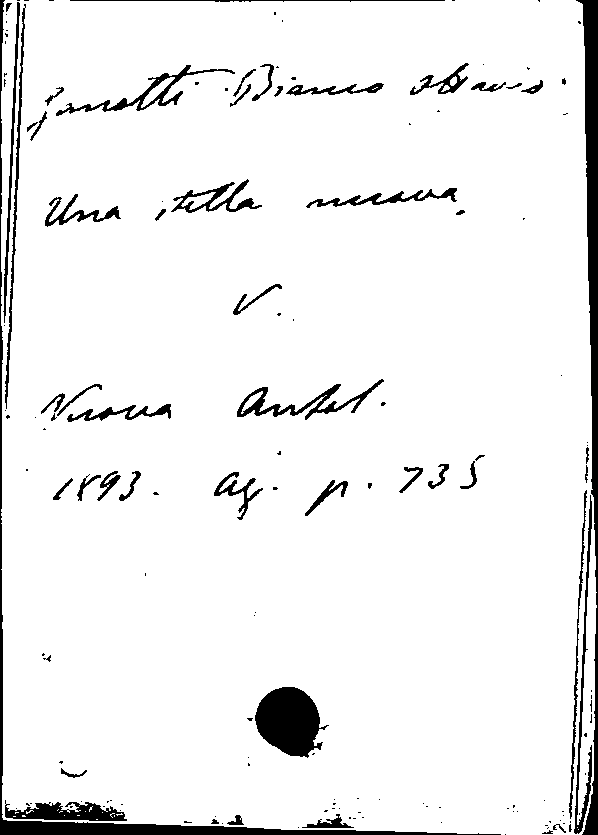 Zanotti Bianco Ottavio.
Una stella nuova.
V.
Nuova Antol.
1893. Ag. p. 735